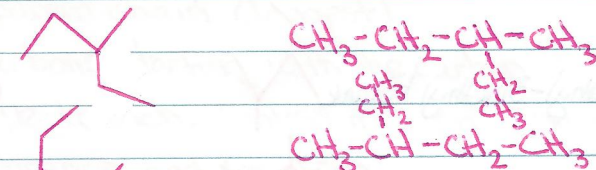 CH₃-CH₂-CH-CH₃
CH₃ CH₂
CH₂ CH₃
CH₃-CH-CH₂-CH₃